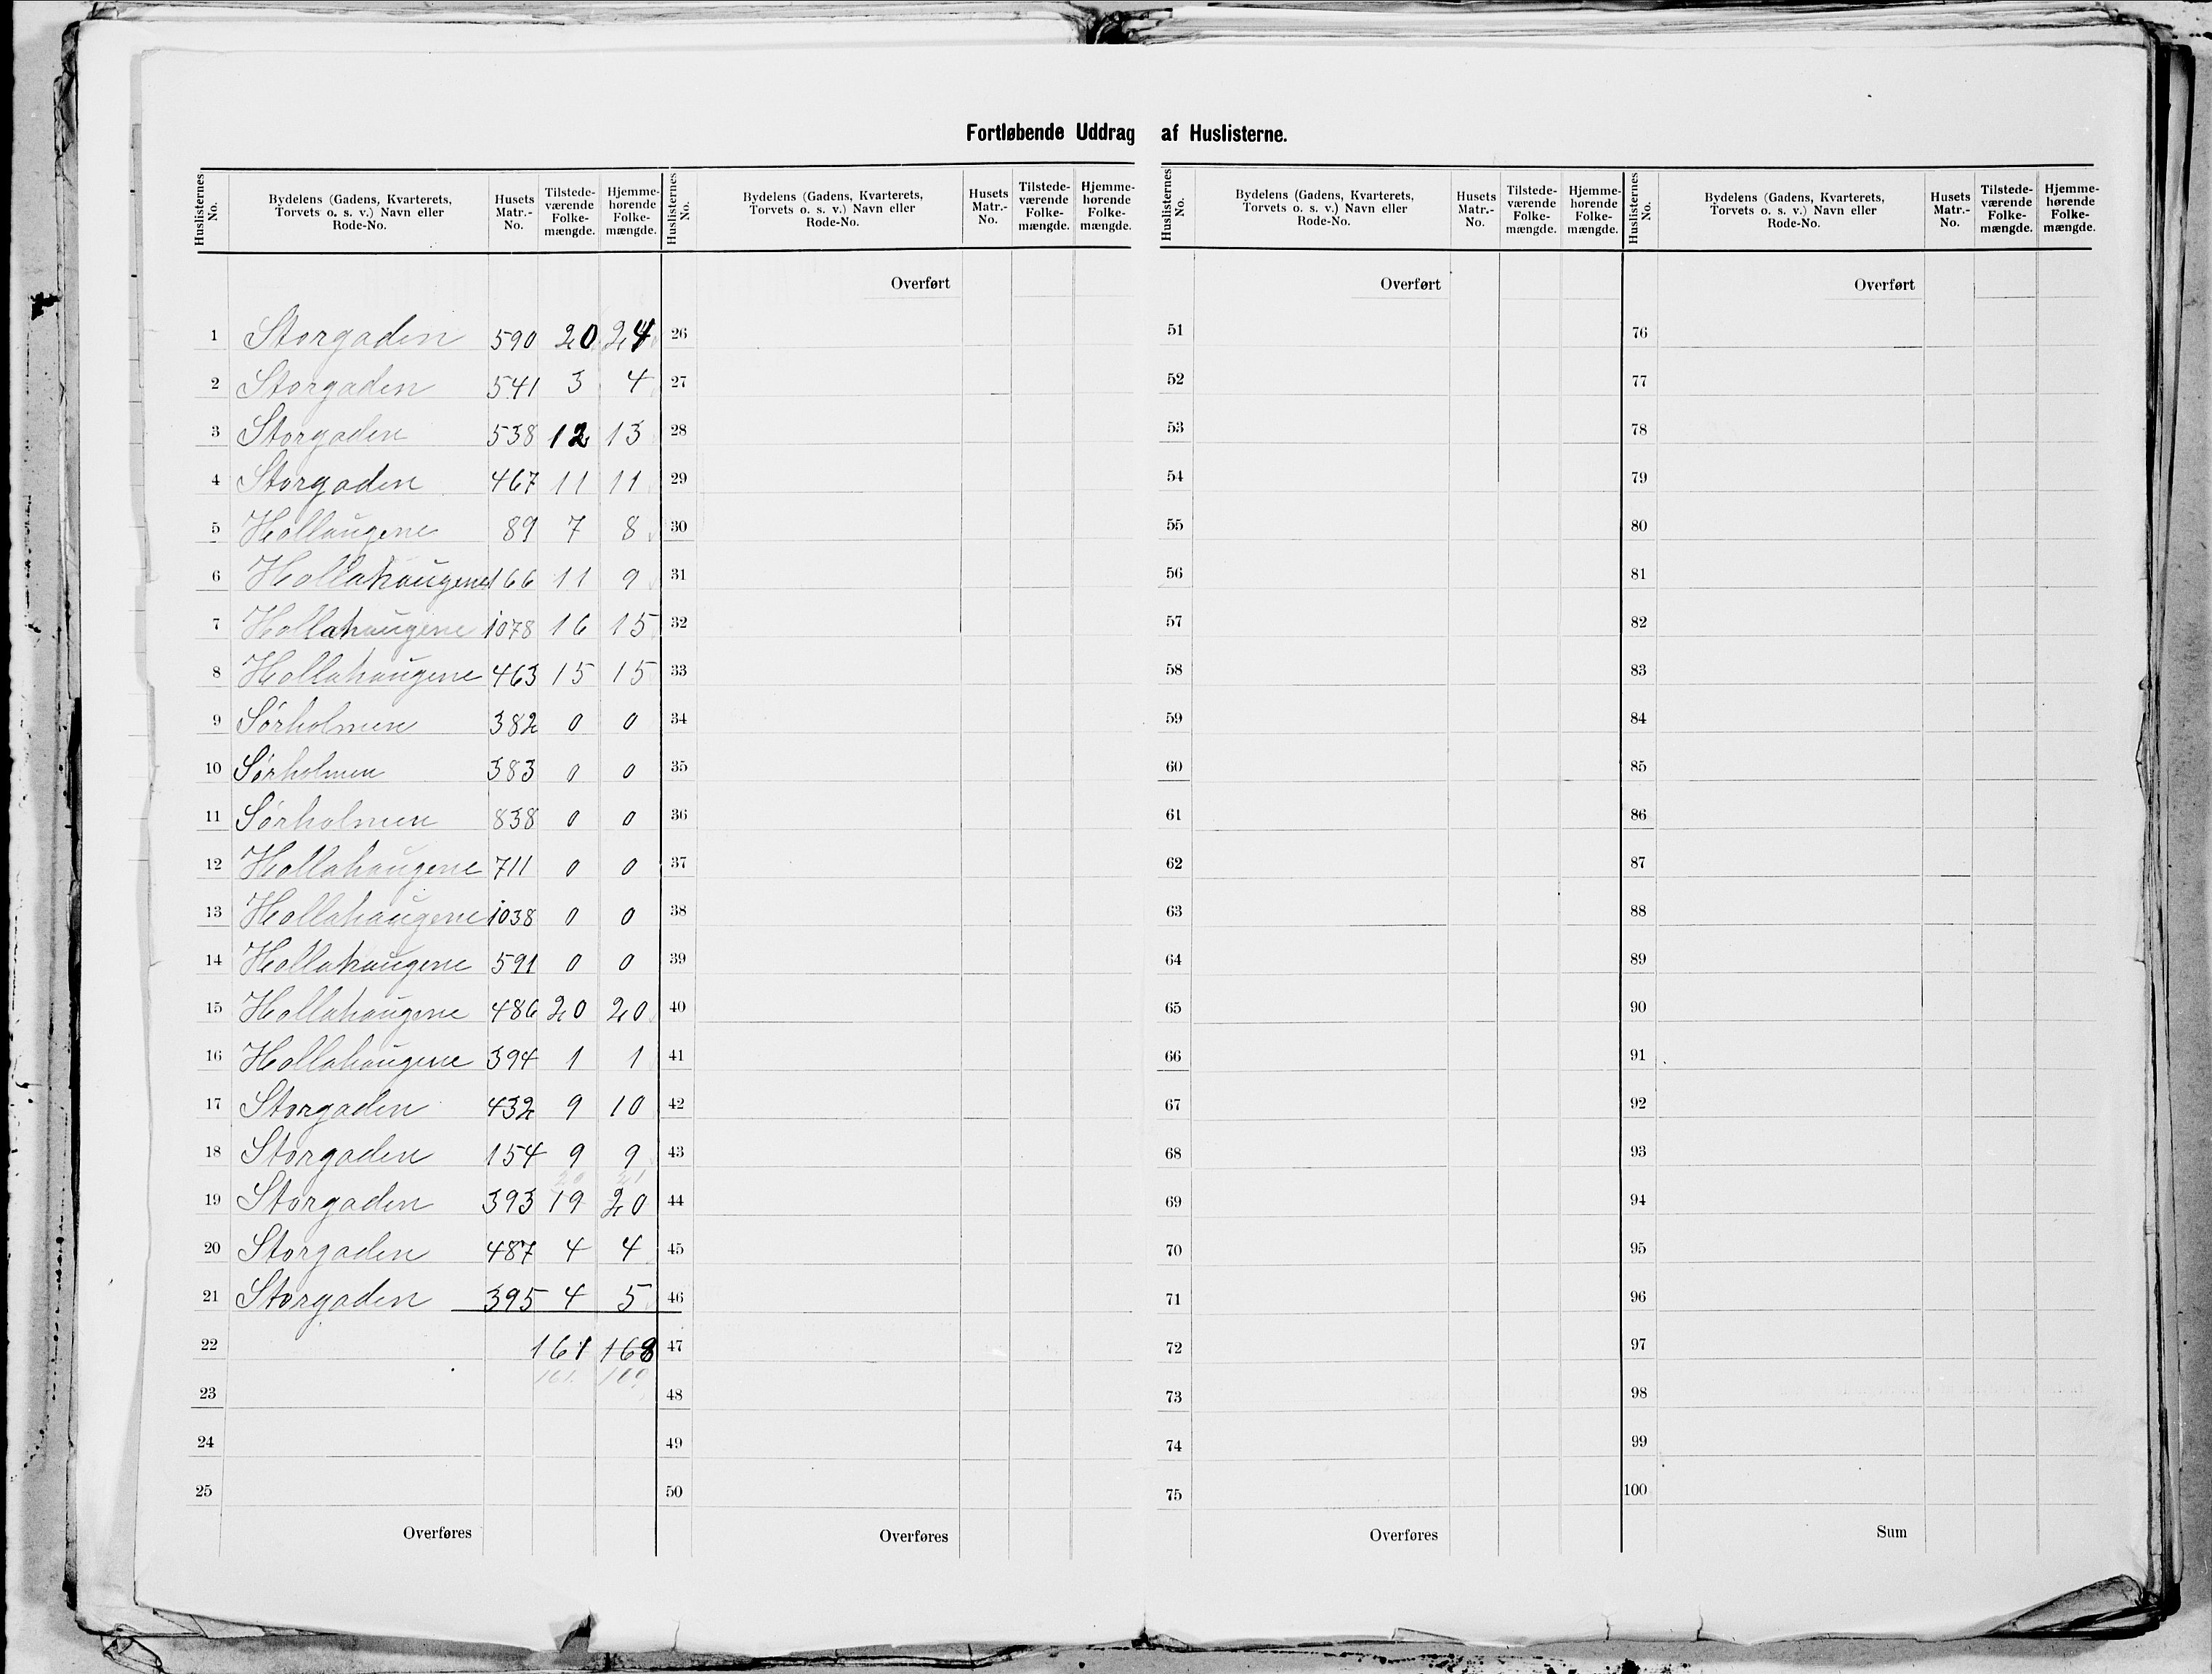 Fortløbende Uddrag af Huslisterne.
Huslisternes No. Bydelens (Gadens, Kvarterets, Torvets o. s. v.) Navn eller Rode-No. Husets Matr.-No. Tilstedeværende Folkemængde. Hjemmehørende Folkemængde.
1 Storgaden 590 20 24
2 Storgaden 541 3 4
3 Storgaden 538 12 13
4 Storgaden 467 11 11
5 Hollaugene 89 7 8
6 Hollahaugene 166 11 9
7 Hollahaugene 1078 16 15
8 Hollahaugene 463 15 15
9 Sørholmen 382 0 0
10 Sørholmen 383 0 0
11 Sørholmen 838 0 0
12 Hollahaugene 711 0 0
13 Hollahaugene 1038 0 0
14 Hollahaugene 591 0 0
15 Hollahaugene 486 20 20
16 Hollahaugene 394 1 1
17 Storgaden 432 9 10
18 Storgaden 154 9 9
19 Storgaden 393 19 20
20 Storgaden 487 4 4
21 Storgaden 395 4 5
22 161 168
161 169
23
24
25
Overføres
Huslisternes No. Bydelens (Gadens, Kvarterets, Torvets o. s. v.) Navn eller Rode-No. Husets Matr.-No. Tilstedeværende Folkemængde. Hjemmehørende Folkemængde.
Overført
26
27
28
29
30
31
32
33
34
35
36
37
38
39
40
41
42
43
44
45
46
47
48
49
50
Overføres
Huslisternes No. Bydelens (Gadens, Kvarterets, Torvets o. s. v.) Navn eller Rode-No. Husets Matr.-No. Tilstedeværende Folkemængde. Hjemmehørende Folkemængde.
Overført
51
52
53
54
55
56
57
58
59
60
61
62
63
64
65
66
67
68
69
70
71
72
73
74
75
Overføres
Huslisternes No. Bydelens (Gadens, Kvarterets, Torvets o. s. v.) Navn eller Rode-No. Husets Matr.-No. Tilstedeværende Folkemængde. Hjemmehørende Folkemængde.
Overført
76
77
78
79
80
81
82
83
84
85
86
87
88
89
90
91
92
93
94
95
96
97
98
99
100
Sum